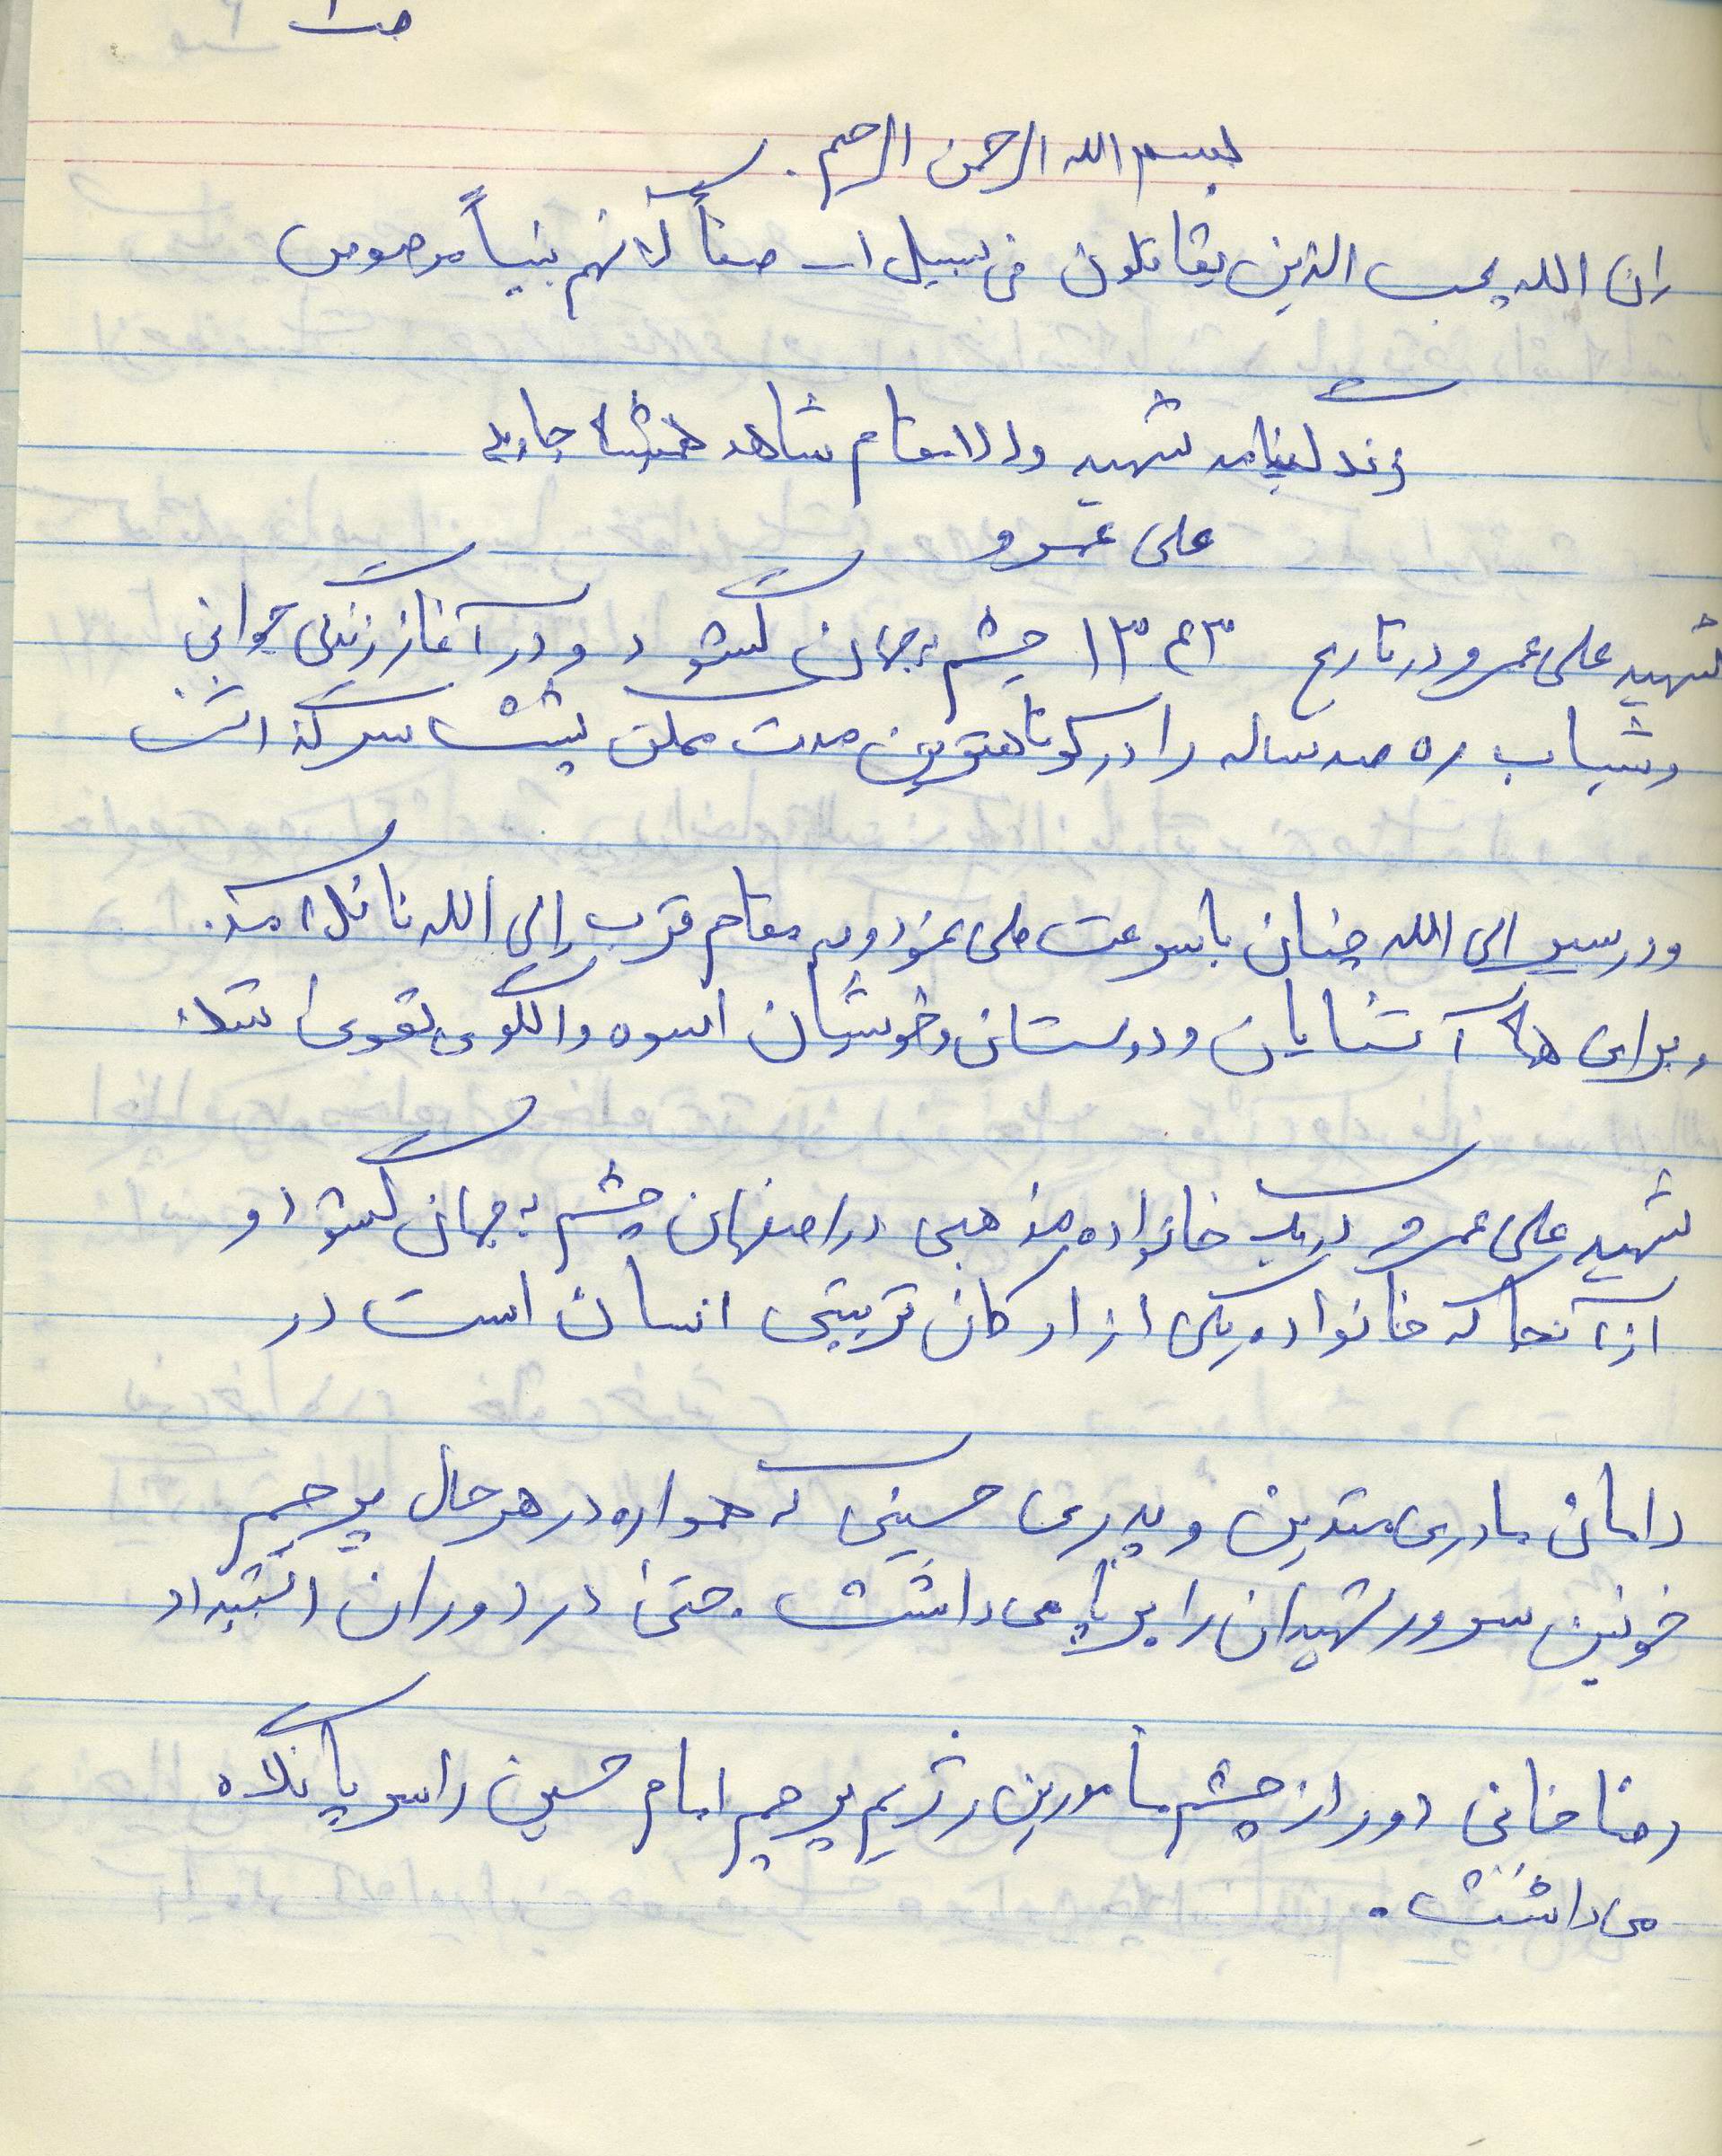 ص ۱
بسم الله الرحمن الرحیم.
ان الله یحب الذین یقاتلون فی سبیل ا... صفاً کانهم بنیاً مرصوص
زندگینامه شهید والامقام شاهد همیشه جاوید
علی عمرو
شهید علی عمرو در تاریخ ۱۳۴۳ چشم به جهان گشود و در آغاز زندگی جوانی
و شباب ره صد ساله را در کوتاهترین مدت ممکن پشت سر گذاشت
و در سیر الی الله چنان با سرعت طی نمود و به مقام قرب الی الله نائل آمد.
و برای همه آشنایان و دوستان و خویشان اسوه و الگوی تقوی شد.
شهید علی عمرو در یک خانواده مذهبی در اصفهان چشم به جهان گشود و
از آنجا که خانواده یکی از ارکان تربیتی انسان است در
دامان مادری متدین و پدری حسینی که همواره در هر حال پرچم
خونین سرور شهیدان را برپا می داشت. حتی در دوران استبداد
رضا خانی دور از چشم مأمورین رژیم پرچم امام حسین را سرپا نگاه
می داشت.